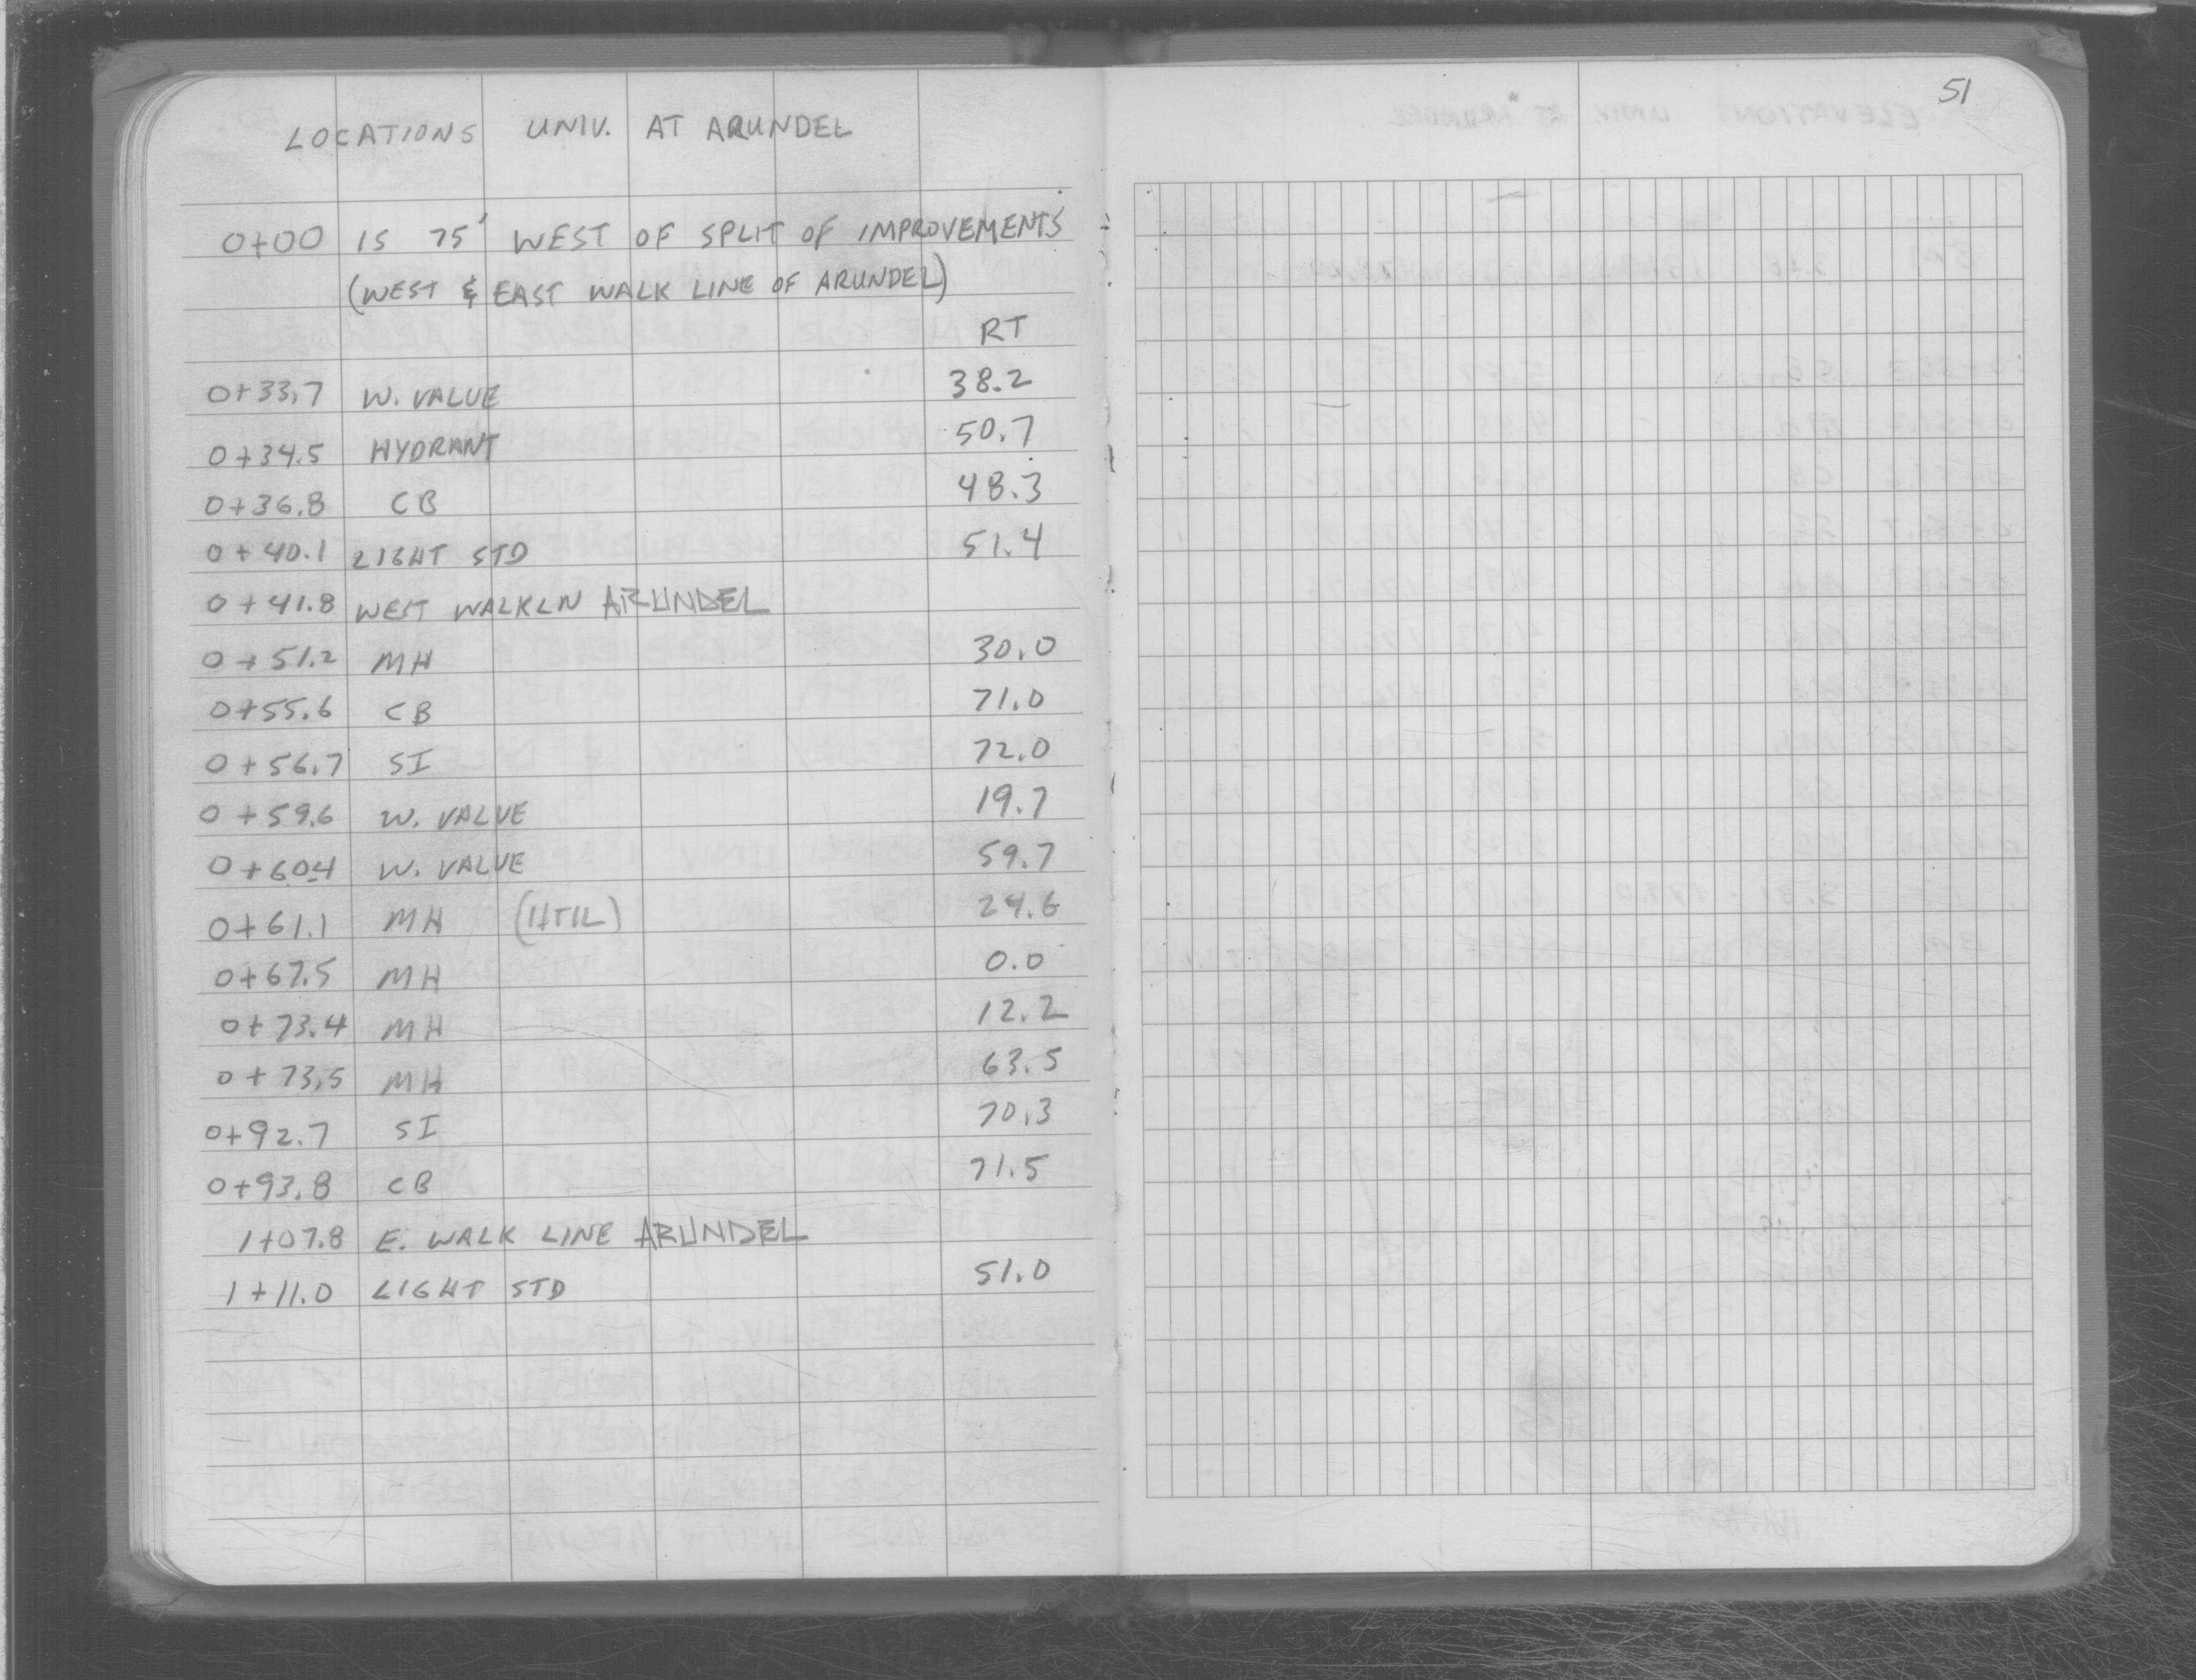 51
LOCATIONS UNIV. AT ARUNDEL
0+00 IS 75' WEST OF SPLIT OF IMPROVEMENTS
(WEST & EAST WALK LINE OF ARUNDEL)
RT
0+33.7 W. VALVE 38.2
0+34.5 HYDRANT 50.7
0+36.8 CB 48.3
0+40.1 LIGHT STD 51.4
0+41.8 WEST WALKLN ARUNDEL
0+51.2 MH 30.0
0+55.6 CB 71.0
0+56.7 SI 72.0
0+59.6 W. VALVE 19.7
0+60.4 W. VALVE 59.7
0+61.1 MH 24.6
0+67.5 MH 0.0
0+73.4 MH 12.2
0+73.5 MH 63.5
0+92.7 SI 70.3
0+93.8 CB 71.5
1+07.8 E. WALK LINE ARUNDEL
1+11.0 LIGHT STD 51.0